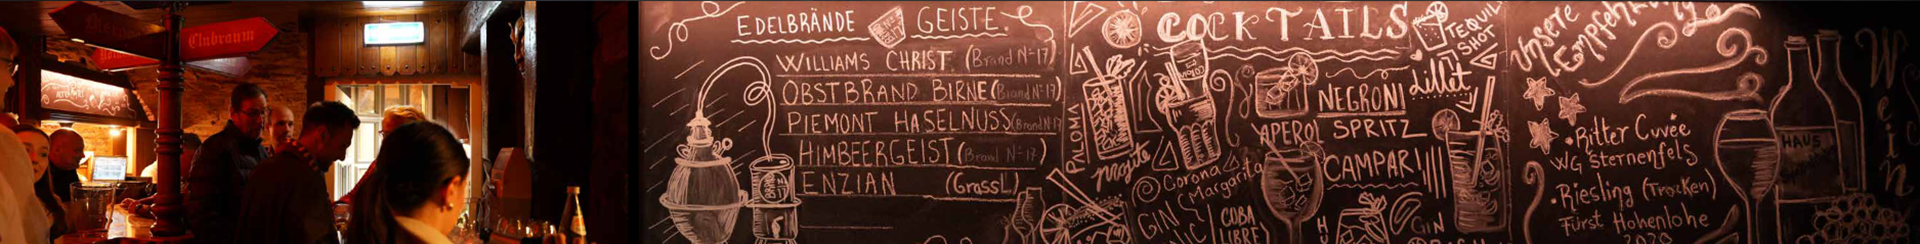 Clubraum
EDELBRÄNDE GEISTE
WILLIAMS CHRIST (Brand Nº17)
OBSTBRAND BIRNE (Brand Nº17)
PIEMONT HASELNUSS (Brand Nº17
HIMBEERGEIST (Brand Nº17)
ENZIAN (GrassL)
COCKTAILS
TEQUIL
SHOT
Lillet
NEGRONI
APEROL SPRITZ
CAMPARI
PALOMA
Corona
Margarita
GIN
CUBA
LIBRE
GIN
Unsere
Empfehlung
• Ritter Cuvée
WG Sternenfels
• Riesling (Trocken)
Fürst Hohenlohe
2020
HAUS
Wein